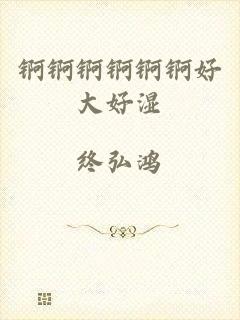 锕锕锕锕锕锕好
大好湿
终弘鸿